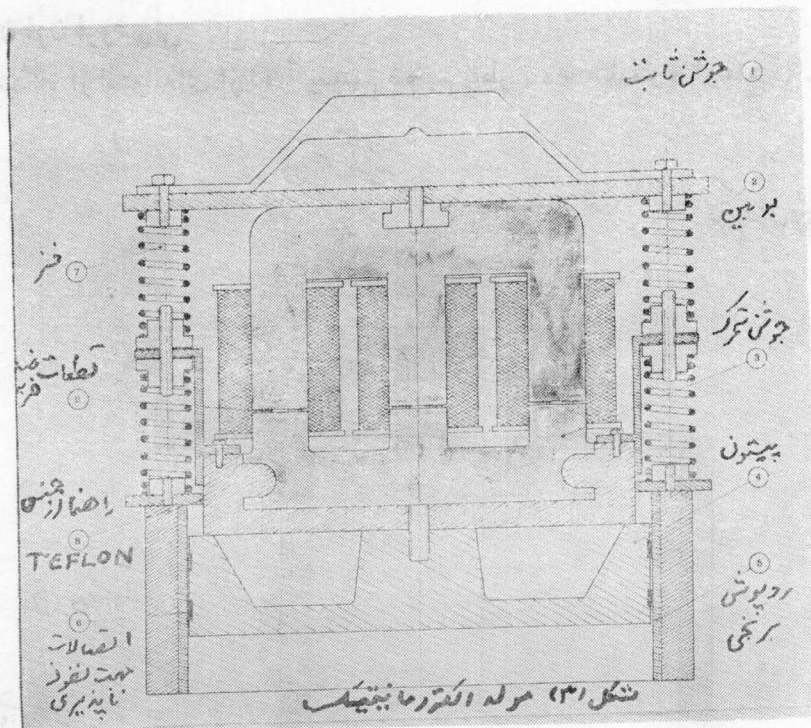 ① هوشن ثابت
②
بوبین
هوشن متحرک
③
پیستون
④
⑤
روپوش
برنجی
فنر ⑦
قطعات ضد
ضربه
راهنما از جنس
TEFLON
اتصالات
جهت نفوذ
ناپذیری
شکل (۳) مولد الکترومانیتیک